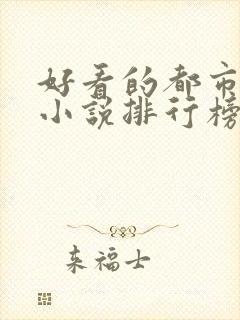 好看的都市
小说排行榜
来福士